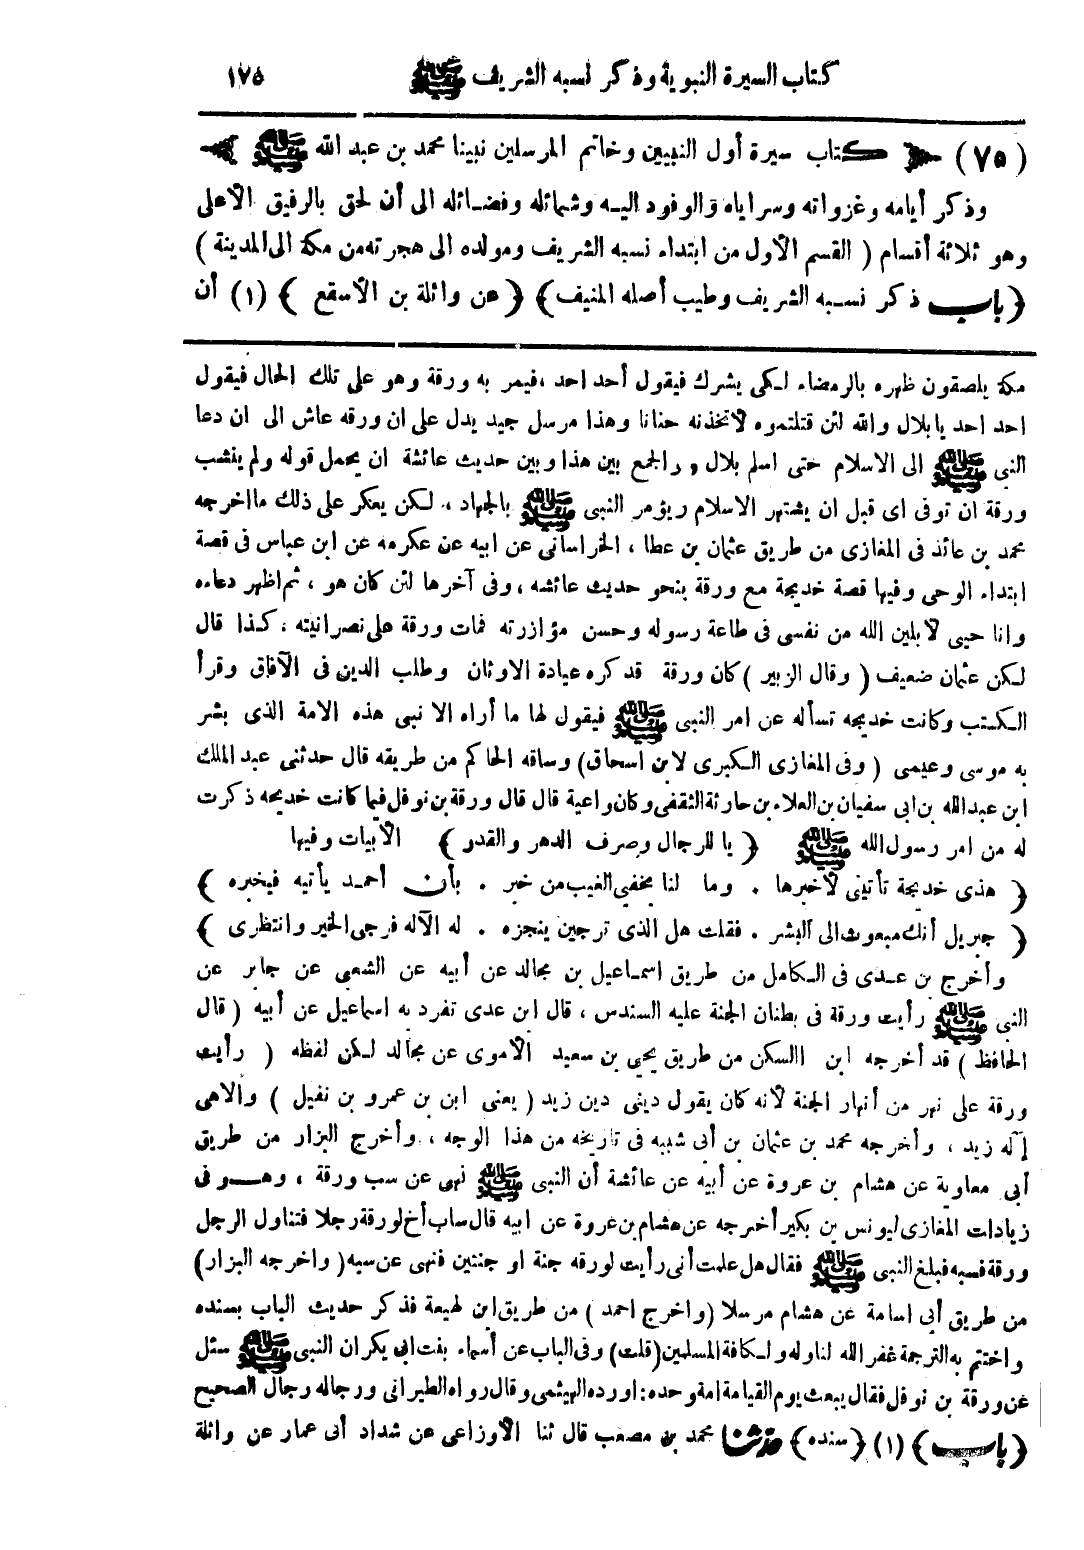 كتاب السيرة النبوية وذكر نسبه الشريف ﷺ ١٧٥
(٧٥) ﴿ كتاب سيرة أول النبيين وخاتم المرسلين نبينا محمد بن عبد الله ﷺ ﴾
وذكر أيامه وغزواته وسراياه والوفود اليه وشمائله وفضائله الى أن لحق بالرفيق الأعلى
وهو ثلاثة أقسام ( القسم الأول من ابتداء نسبه الشريف ومولده الى هجرته من مكة الى المدينة )
﴿ باب ذكر نسبه الشريف وطيب أصله المنيف ﴾ ﴿ عن واثلة بن الأسقع ﴾ (١) أن
مكة يلصقون ظهره بالرمضاء لكى يشرك فيقول أحد احد ، فيمر به ورقة وهو على تلك الحال فيقول
احد احد يابلال والله لئن قتلتموه لاتخذنه حنانا وهذا مرسل جيد يدل على ان ورقه عاش الى ان دعا
النبى ﷺ الى الاسلام حتى اسلم بلال ، والجمع بين هذا وبين حديث عائشة ان يحمل قوله ولم ينشب
ورقة ان توفى اى قبل ان يشتهر الاسلام ويؤمر النبى ﷺ بالجهاد ، لكن يعكر على ذلك ما اخرجه
محمد بن عائذ فى المغازى من طريق عثمان بن عطاء الخراسانى عن ابيه عن عكرمه عن ابن عباس فى قصة
ابتداء الوحى وفيها قصة خديجة مع ورقة بنحو حديث عائشه ، وفى آخرها لئن كان هو ، ثم اظهر دعاءه
وانا حيى لابلين الله من نفسى فى طاعة رسوله وحسن مؤازرته فمات ورقة على نصرانيته ، كذا قال
لكن عثمان ضعيف ( وقال الزبير ) كان ورقة قد كره عبادة الاوثان وطلب الدين فى الآفاق وقرأ
الكتب وكانت خديجه تسأله عن امر النبى ﷺ فيقول لها ما أراه الا نبى هذه الامة الذى بشر
به موسى وعيسى ( وفى المغازى الكبرى لابن اسحاق) وساقه الحاكم من طريقه قال حدثنى عبد الملك
ابن عبدالله بن ابى سفيان بن العلاء بن حارثة الثقفى وكان واعية قال قال ورقة بن نوفل فيما كانت خديجه ذكرت
له من امر رسول الله ﷺ ﴿ يا للرجال وصرف الدهر والقدر ﴾ الأبيات وفيها
﴿ هذى خديجة تأتينى لأخبرها . وما لنا بخفى الغيب من خبر . بأن أحمد يأتيه فيخبره ﴾
﴿ جبريل أنك مبعوث الى البشر . فقلت هل الذى ترجين ينجزه . له الآله فرجى الخير وانتظرى ﴾
وأخرج بن عدى فى الكامل من طريق اسماعيل بن مجالد عن أبيه عن الشعبى عن جابر عن
النبى ﷺ رأيت ورقة فى بطنان الجنة عليه السندس ، قال ابن عدى تفرد به اسماعيل عن أبيه ( قال
الحافظ ) قد أخرجه ابن السكن من طريق يحيى بن سعيد الأموى عن مجالد لكن لفظه ( رأيت
ورقة على نهر من أنهار الجنة لأنه كان يقول دينى دين زيد ( يعنى ابن بن عمرو بن نفيل ) والاهى
إآله زيد ، وأخرجه محمد بن عثمان بن أبى شيبه فى تاريخه من هذا الوجه ، وأخرج البزار من طريق
أبى معاوية عن هشام بن عروة عن أبيه عن عائشة أن النبى ﷺ نهى عن سب ورقة ، وهو فى
زيادات المغازى ليونس بن بكير أخرجه عن هشام بن عروة عن ابيه قال ساب أخ لورقة رجلا فتناول الرجل
ورقة فسبه فبلغ النبى ﷺ فقال هل علمت أنى رأيت لورقه جنة او جنتين فنهى عن سبه ( واخرجه البزار)
من طريق أبى اسامة عن هشام مرسلا (واخرج احمد ) من طريق ابن لهيعة فذكر حديث الباب بسنده
واختتم به الترجمة غفر الله لنا وله ولكافة المسلمين (قلت) وفى الباب عن أسماء بنت ابى بكر ان النبى ﷺ سئل
عن ورقة بن نوفل فقال يبعث يوم القيامة امة وحده : اورده الهيثمى وقال رواه الطبرانى ورجاله رجال الصحيح
﴿ باب ﴾ (١) ﴿ سنده ﴾ حدثنا محمد بن مصعب قال ثنا الأوزاعى عن شداد أبى عمار عن واثلة